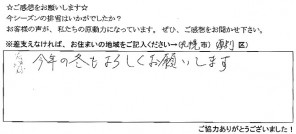 ☆ご感想をお願いします☆
今シーズンの排雪はいかがでしたか？
お客様の声が、私たちの原動力になっています。ぜひ、ご感想をお聞かせ下さい。
※差支えなければ、お住まいの地域をご記入ください→（札幌市）（ 区）
今年の冬もよろしくお願いします
ご協力ありがとうございました！